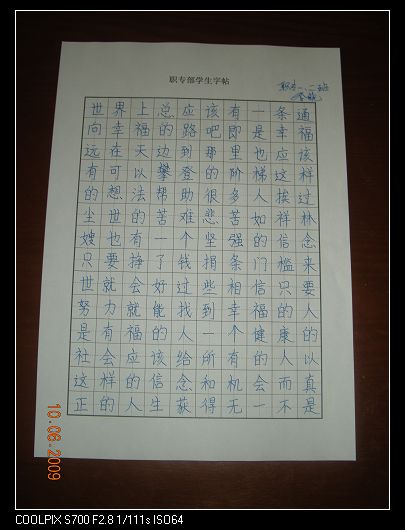 职专部学生字帖
职专一、二班
世界上总应该有一条通
向幸福的路吧即是幸福
远在天边到那里也应该
有可以攀登的阶梯这样
的想法帮助很多人挨过
尘世的苦难悲苦如祥林
嫂也有一个坚强的信念
只要挣了钱捐条门槛来
世就会好过些相信只要
努力就能找到幸福的人
是有福的人一个健康的
社会应该给所有的人以
这样的信念和机会而真
正的人生获得无一不是
10.06.2009
COOLPIX S700 F2.8 1/111s ISO64